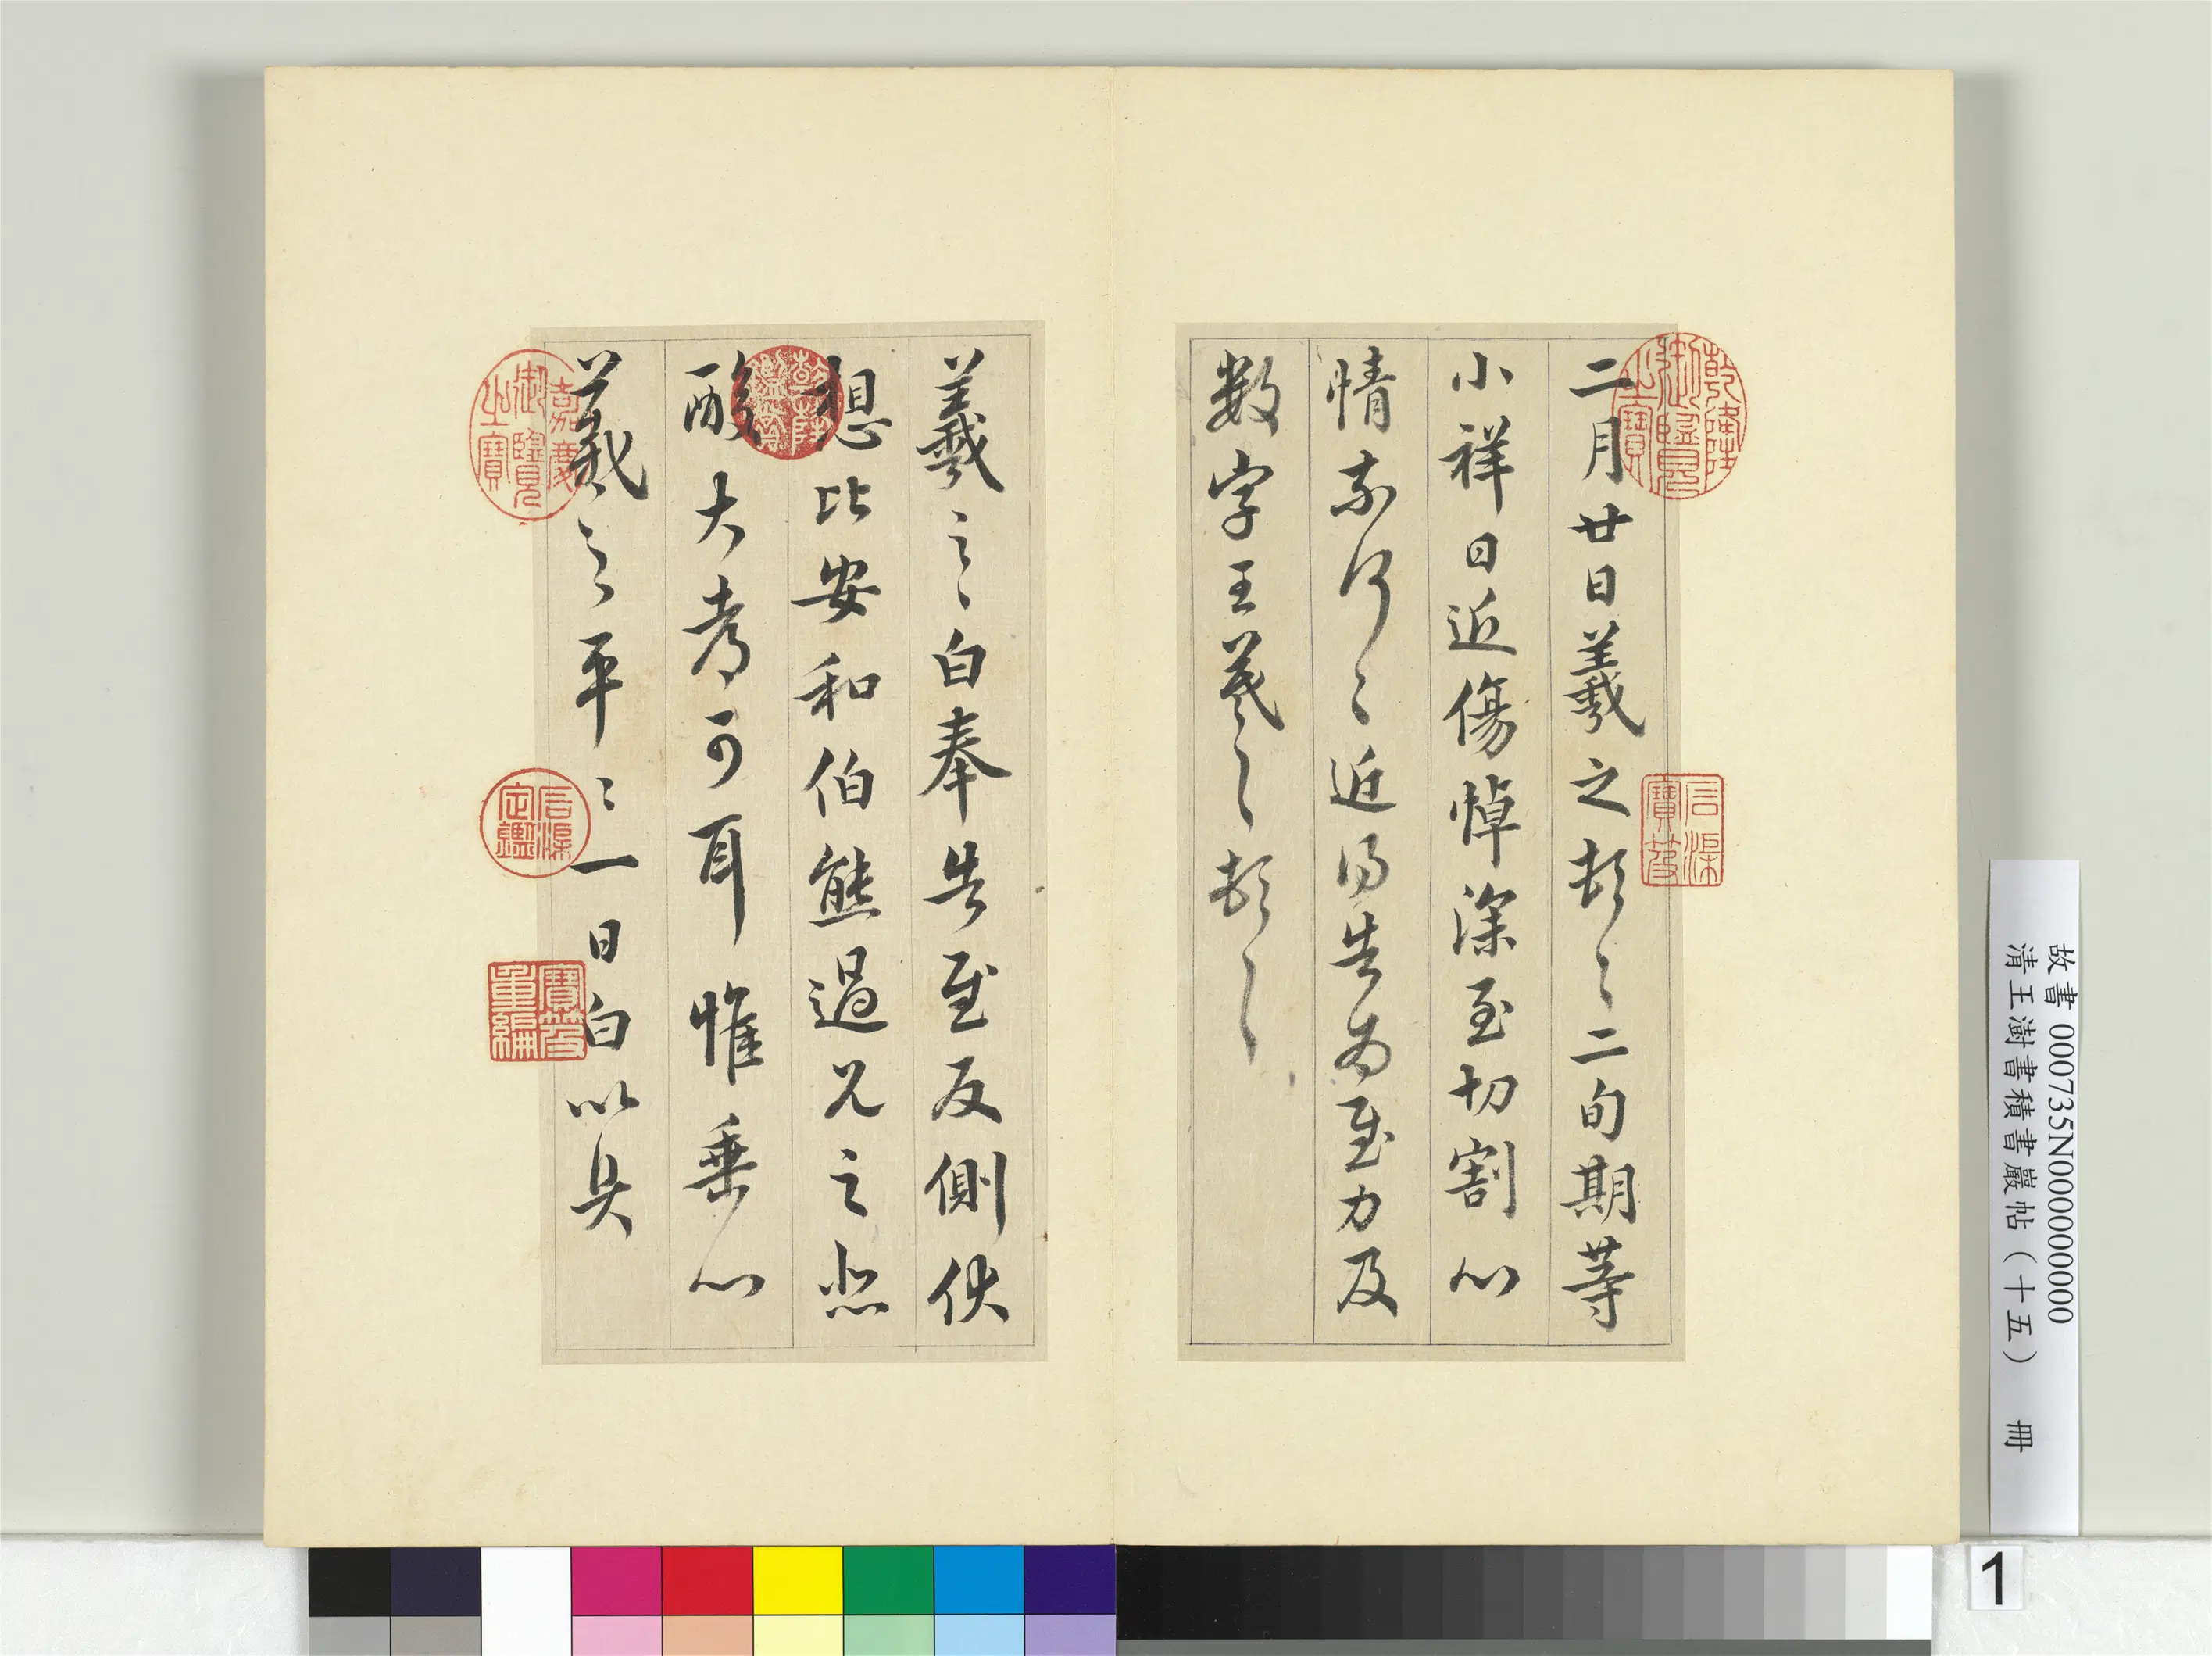 二月廿日羲之頓首二旬期等
小祥日近傷悼深至切割心
情奈何〻近得告為慰力及
數字王羲之頓首
羲之白奉告慰反側伏
想比安和伯熊過見之悲
酸大都可耳惟垂心
羲之平〻一日白以具
乾隆御覽之寶
石渠寶笈
乾隆鑑賞
嘉慶御覽之寶
石渠定鑑
寶笈重編
故書 000735N000000000
清王澍書積書巖帖(十五) 冊
1